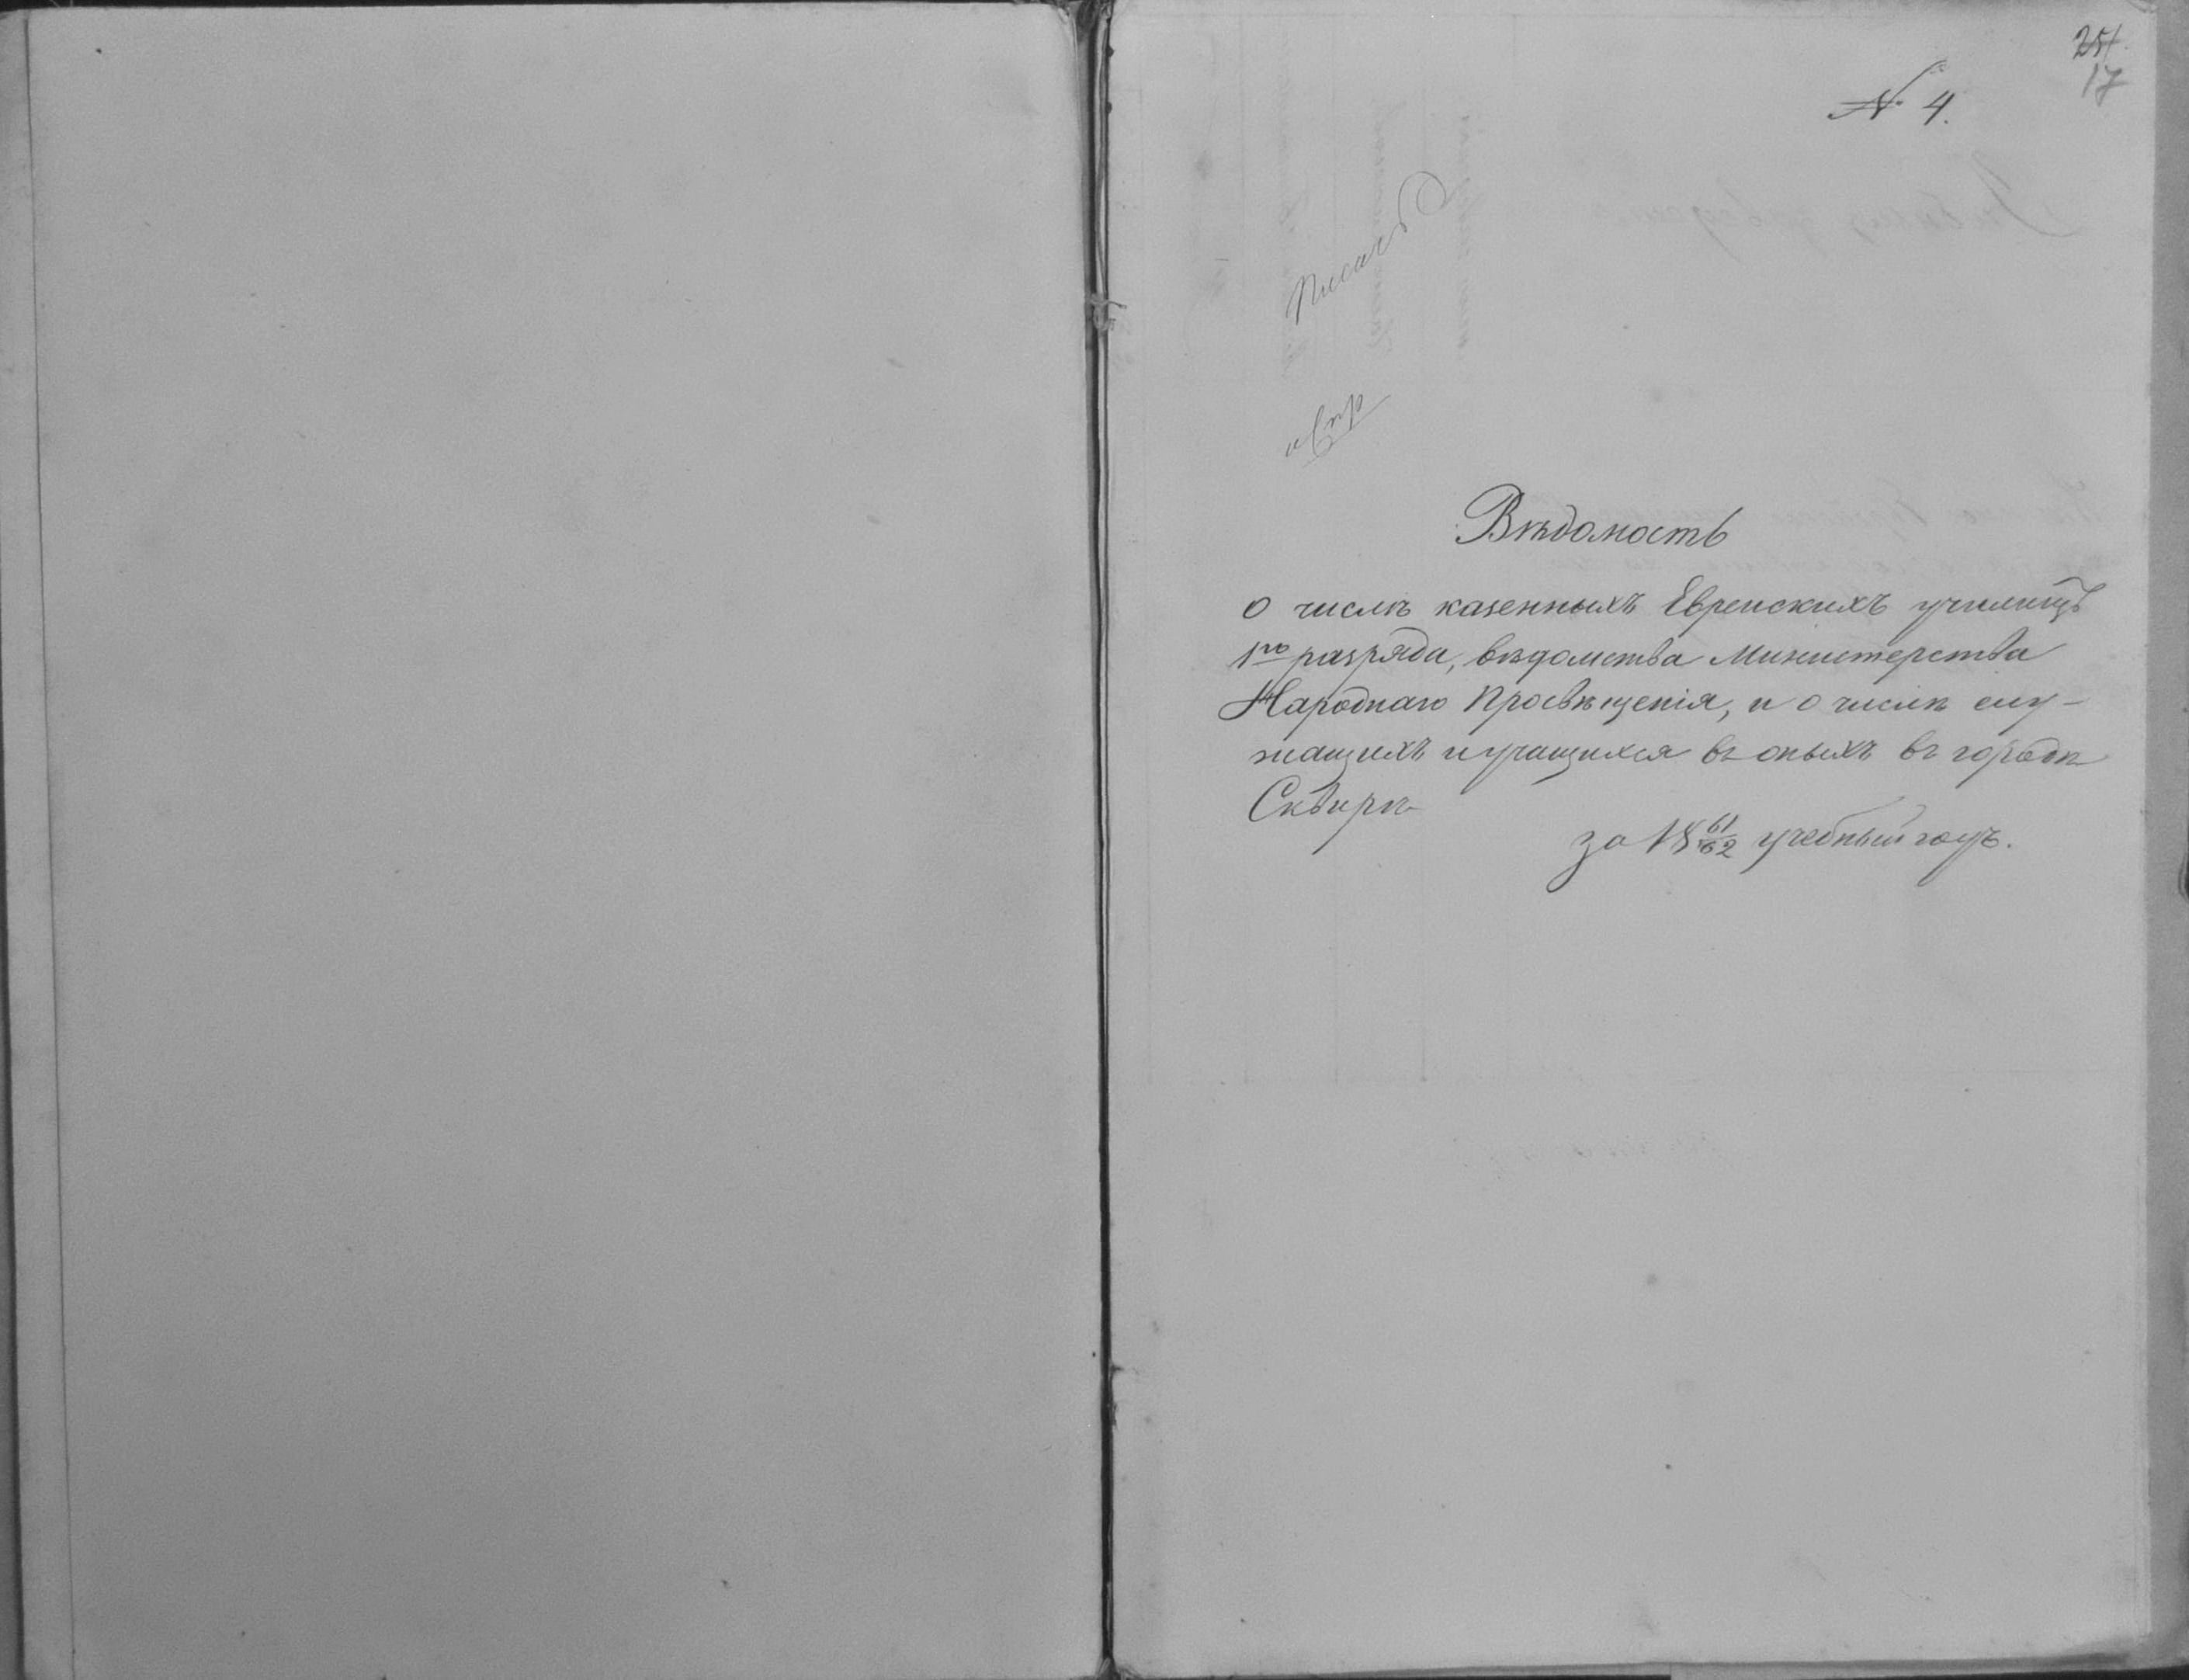 25
17
№ 4.
Писать
Вѣдомость
о числѣ казенныхъ Еврейскихъ училищъ
1го разряда, вѣдомства Министерства
Народнаго Просвѣщенія, и о числѣ слу-
жащихъ и учащихся въ оныхъ въ городѣ
Сквирѣ
за 18 61/62 учебный годъ.